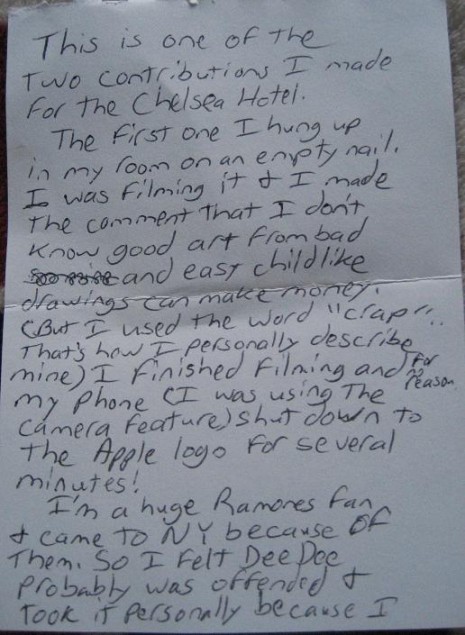 This is one of the
two contributions I made
for the Chelsea Hotel.
The first one I hung up
in my room on an empty nail.
I was filming it & I made
the comment that I don't
know good art from bad
and easy childlike
drawings can make money.
(But I used the word "crap"..
That's how I personally describe
mine) I finished filming and for
reason
my phone (I was using the
camera feature) shut down to
the Apple logo for several
minutes!
I'm a huge Ramones fan
& came to NY because of
them. So I felt Dee Dee
probably was offended &
took it personally because I